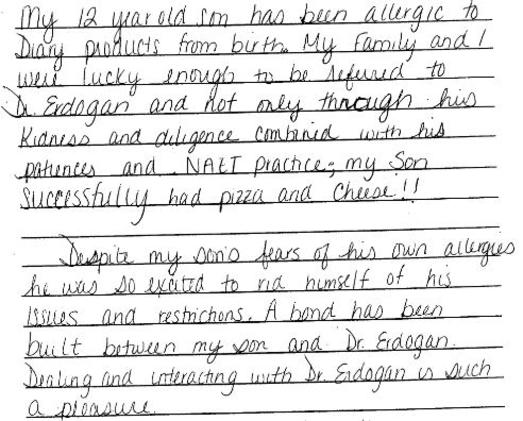 My 12 year old son has been allergic to
Diary products from birth. My Family and I
were lucky enough to be refered to
Dr. Erdogan and not only through his
Kidness and diligence combined with his
patiences and NAET practice; my Son
Successfully had pizza and Cheese!!
Despite my son's fears of his own allergies
he was so excited to rid himself of his
issues and restrictions. A bond has been
built between my son and Dr. Erdogan.
Dealing and interacting with Dr. Erdogan is such
a pleasure.